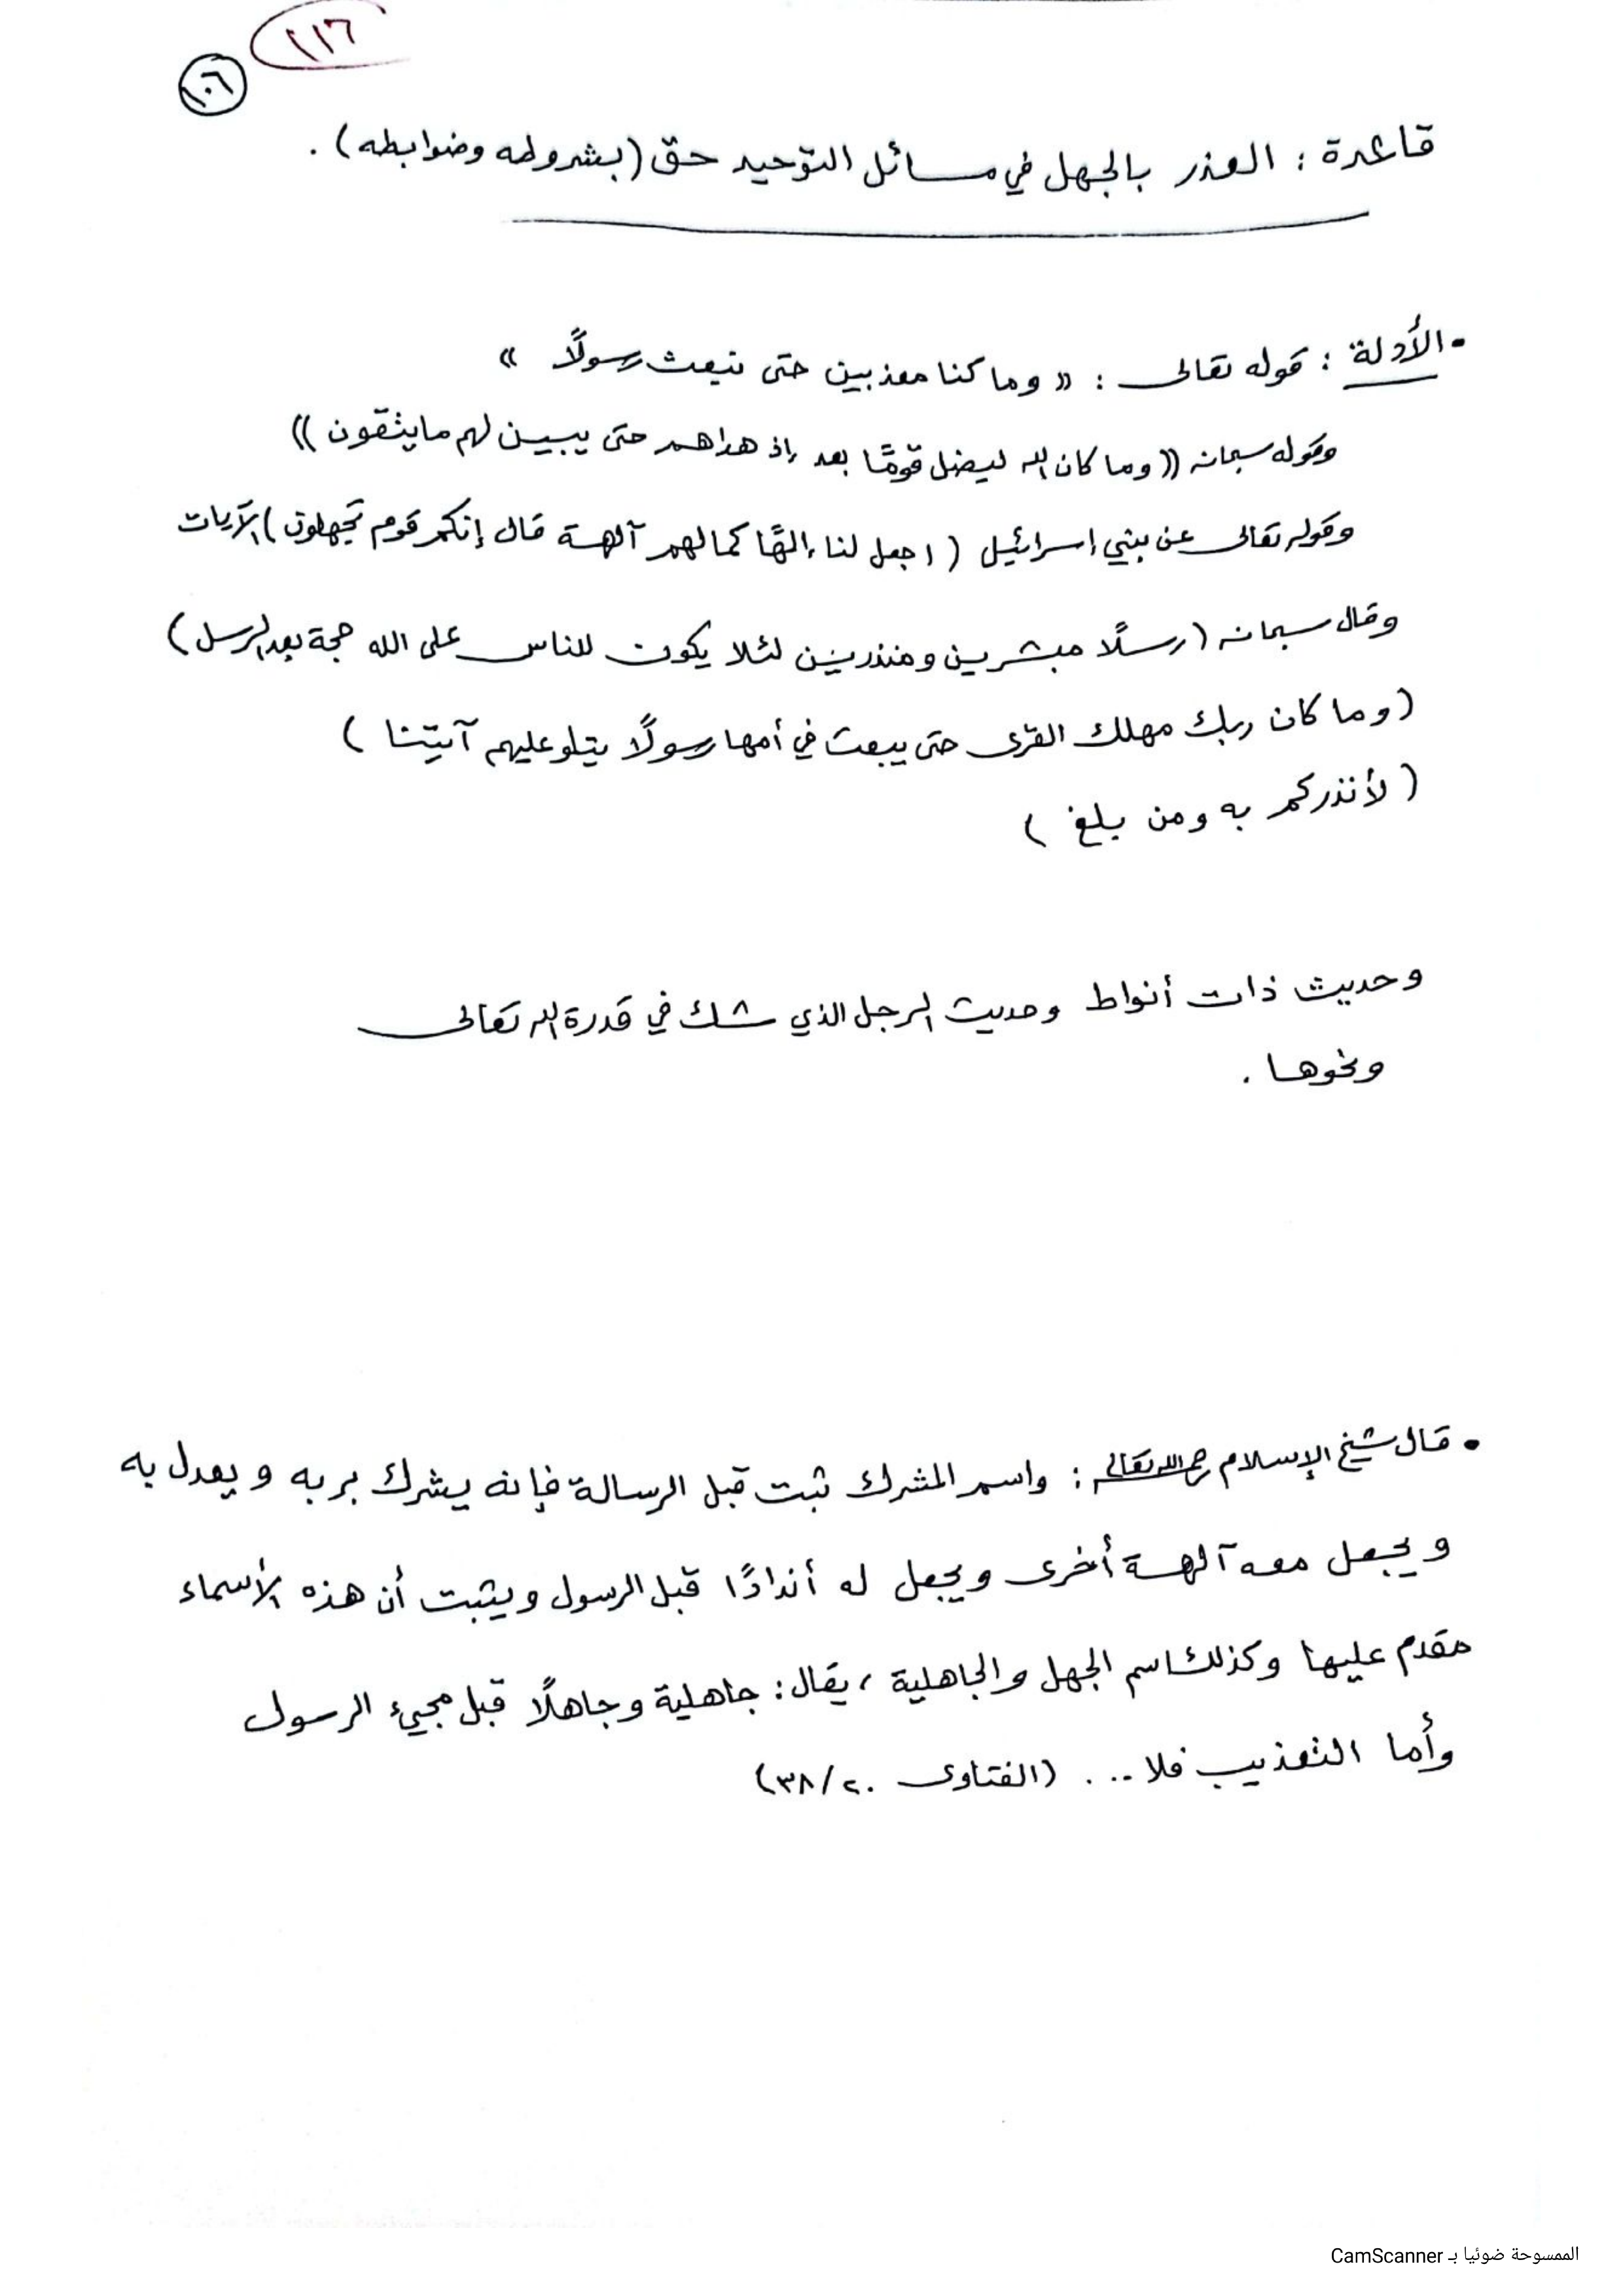 ١١٦
١٠٦
قاعدة : العذر بالجهل في مسائل التوحيد حق (بشروطه وضوابطه) .
• الأدلة : قوله تعالى : « وما كنا معذبين حتى نبعث رسولًا »
وقوله سبحانه ((وما كان الله ليضل قومًا بعد إذ هداهم حتى يبين لهم مايتقون ))
وقوله تعالى عن بني إسرائيل ( اجعل لنا إلهًا كما لهم آلهة قال إنكم قوم تجهلون ) الآيات
وقال سبحانه ( رسلًا مبشرين ومنذرين لئلا يكون للناس على الله حجة بعد الرسل )
( وما كان ربك مهلك القرى حتى يبعث في أمها رسولًا يتلو عليهم آيتنا )
( لأنذركم به ومن بلغ )
وحديث ذات أنواط وحديث الرجل الذي شك في قدرة الله تعالى
ونحوها .
• قال شيخ الإسلام رحمه الله تعالى : واسم المشرك ثبت قبل الرسالة فإنه يشرك بربه ويعدل به
ويجعل معه آلهة أخرى ويجعل له أندادًا قبل الرسول ويثبت أن هذه الأسماء
مقدم عليها وكذلك اسم الجهل والجاهلية ، يقال : جاهلية وجاهلًا قبل مجيء الرسول
وأما التعذيب فلا ... (الفتاوى ٣٨/٢٠)
الممسوحة ضوئيا بـ CamScanner